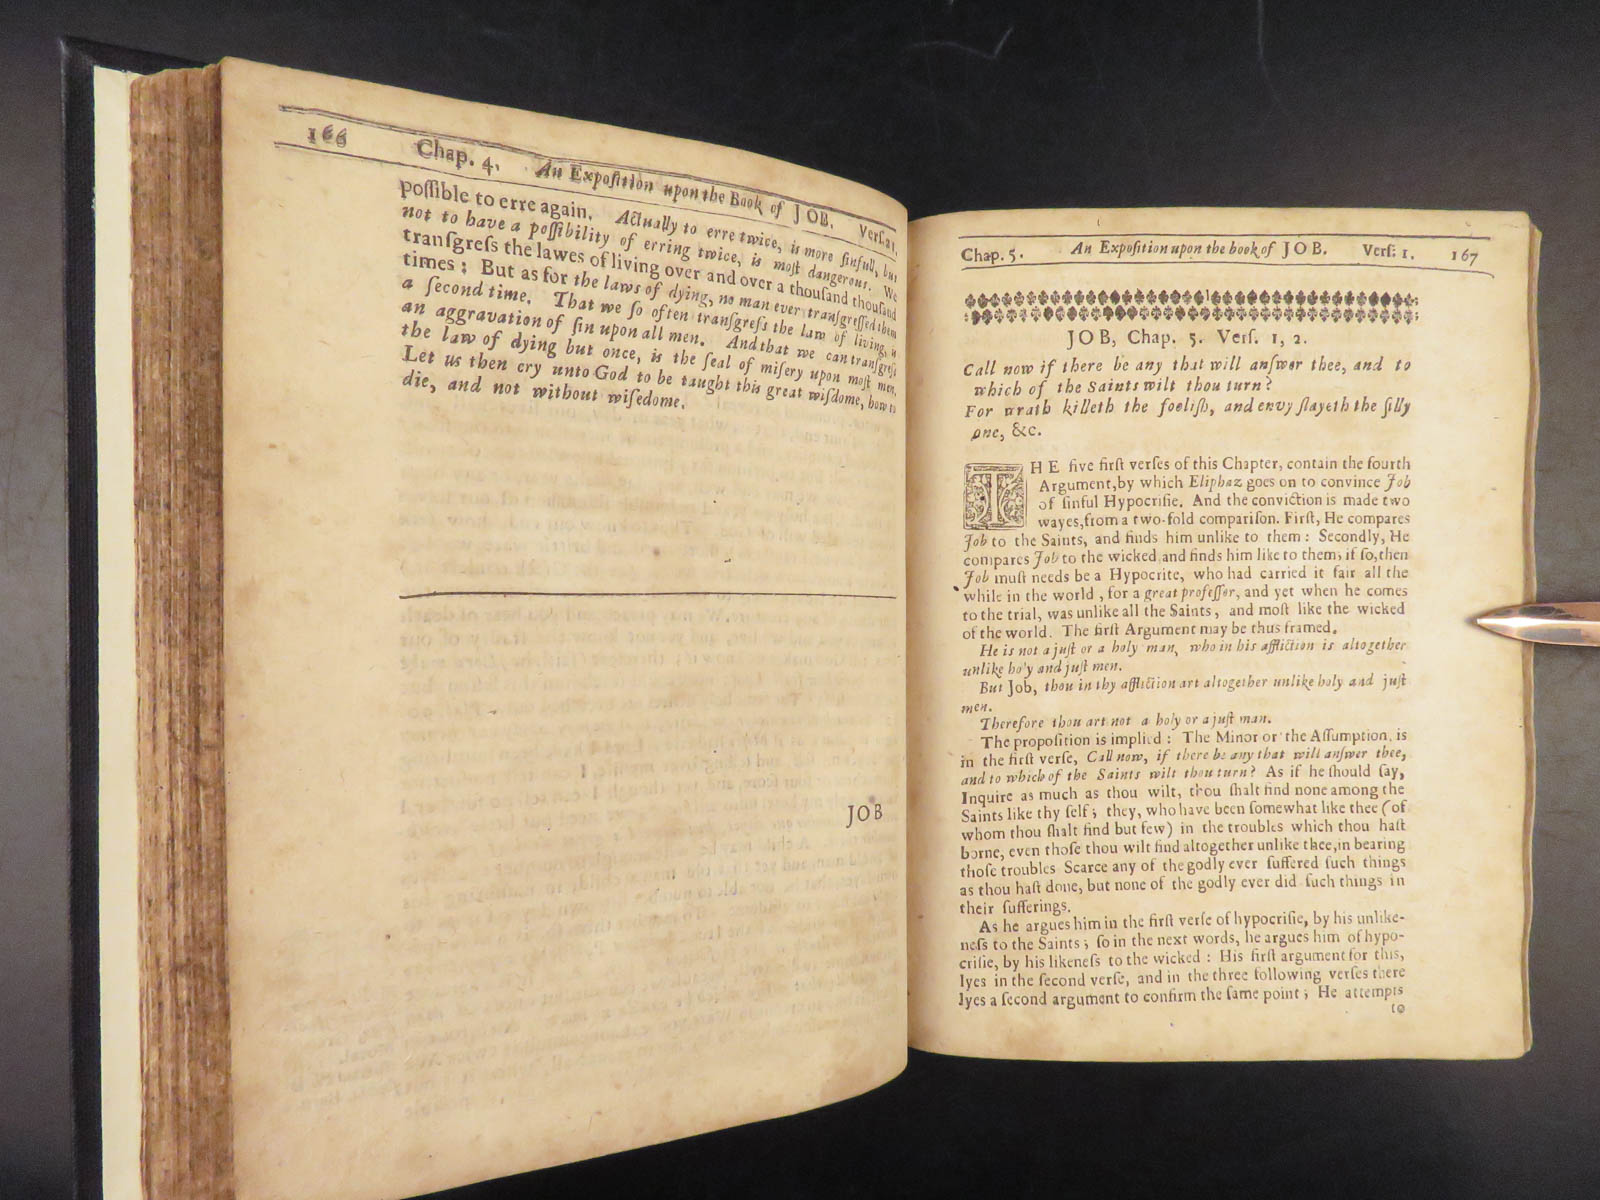 166 Chap. 4. An Expoſition upon the Book of JOB. Verſ. 21.
poſſible to erre again. Actually to erre twice, is more ſinfull, but
not to have a poſſibility of erring twice, is moſt dangerous. We
tranſgreſs the lawes of living over and over a thouſand thouſand
times; But as for the laws of dying, no man ever tranſgreſſed them
a ſecond time. That we ſo often tranſgreſs the law of living, is
an aggravation of ſin upon all men. And that we can tranſgreſs
the law of dying but once, is the ſeal of miſery upon moſt men.
Let us then cry unto God to be taught this great wiſdome, how to
die, and not without wiſedome.
JOB
Chap. 5. An Expoſition upon the book of JOB. Verſ: 1. 167
JOB, Chap. 5. Verſ. 1, 2.
Call now if there be any that will anſwer thee, and to
which of the Saints wilt thou turn?
For wrath killeth the fooliſh, and envy ſlayeth the ſilly
one, &c.
THE five firſt verſes of this Chapter, contain the fourth
Argument, by which Eliphaz goes on to convince Job
of ſinful Hypocriſie. And the conviction is made two
wayes, from a two-fold compariſon. Firſt, He compares
Job to the Saints, and finds him unlike to them: Secondly, He
compares Job to the wicked and finds him like to them; if ſo, then
Job muſt needs be a Hypocrite, who had carried it fair all the
while in the world, for a great profeſſor, and yet when he comes
to the trial, was unlike all the Saints, and moſt like the wicked
of the world. The firſt Argument may be thus framed.
He is not a juſt or a holy man, who in his affliction is altogether
unlike holy and juſt men.
But Job, thou in thy affliction art altogether unlike holy and juſt
men.
Therefore thou art not a holy or a juſt man.
The propoſition is implied: The Minor or the Aſſumption, is
in the firſt verſe, Call now, if there be any that will anſwer thee,
and to which of the Saints wilt thou turn? As if he ſhould ſay,
Inquire as much as thou wilt, thou ſhalt find none among the
Saints like thy ſelf; they, who have been ſomewhat like thee (of
whom thou ſhalt find but few) in the troubles which thou haſt
borne, even thoſe thou wilt find altogether unlike thee, in bearing
thoſe troubles Scarce any of the godly ever ſuffered ſuch things
as thou haſt done, but none of the godly ever did ſuch things in
their ſufferings.
As he argues him in the firſt verſe of hypocriſie, by his unlike-
neſs to the Saints; ſo in the next words, he argues him of hypo-
criſie, by his likeneſs to the wicked: His firſt argument for this,
lyes in the ſecond verſe, and in the three following verſes there
lyes a ſecond argument to confirm the ſame point; He attempts
to